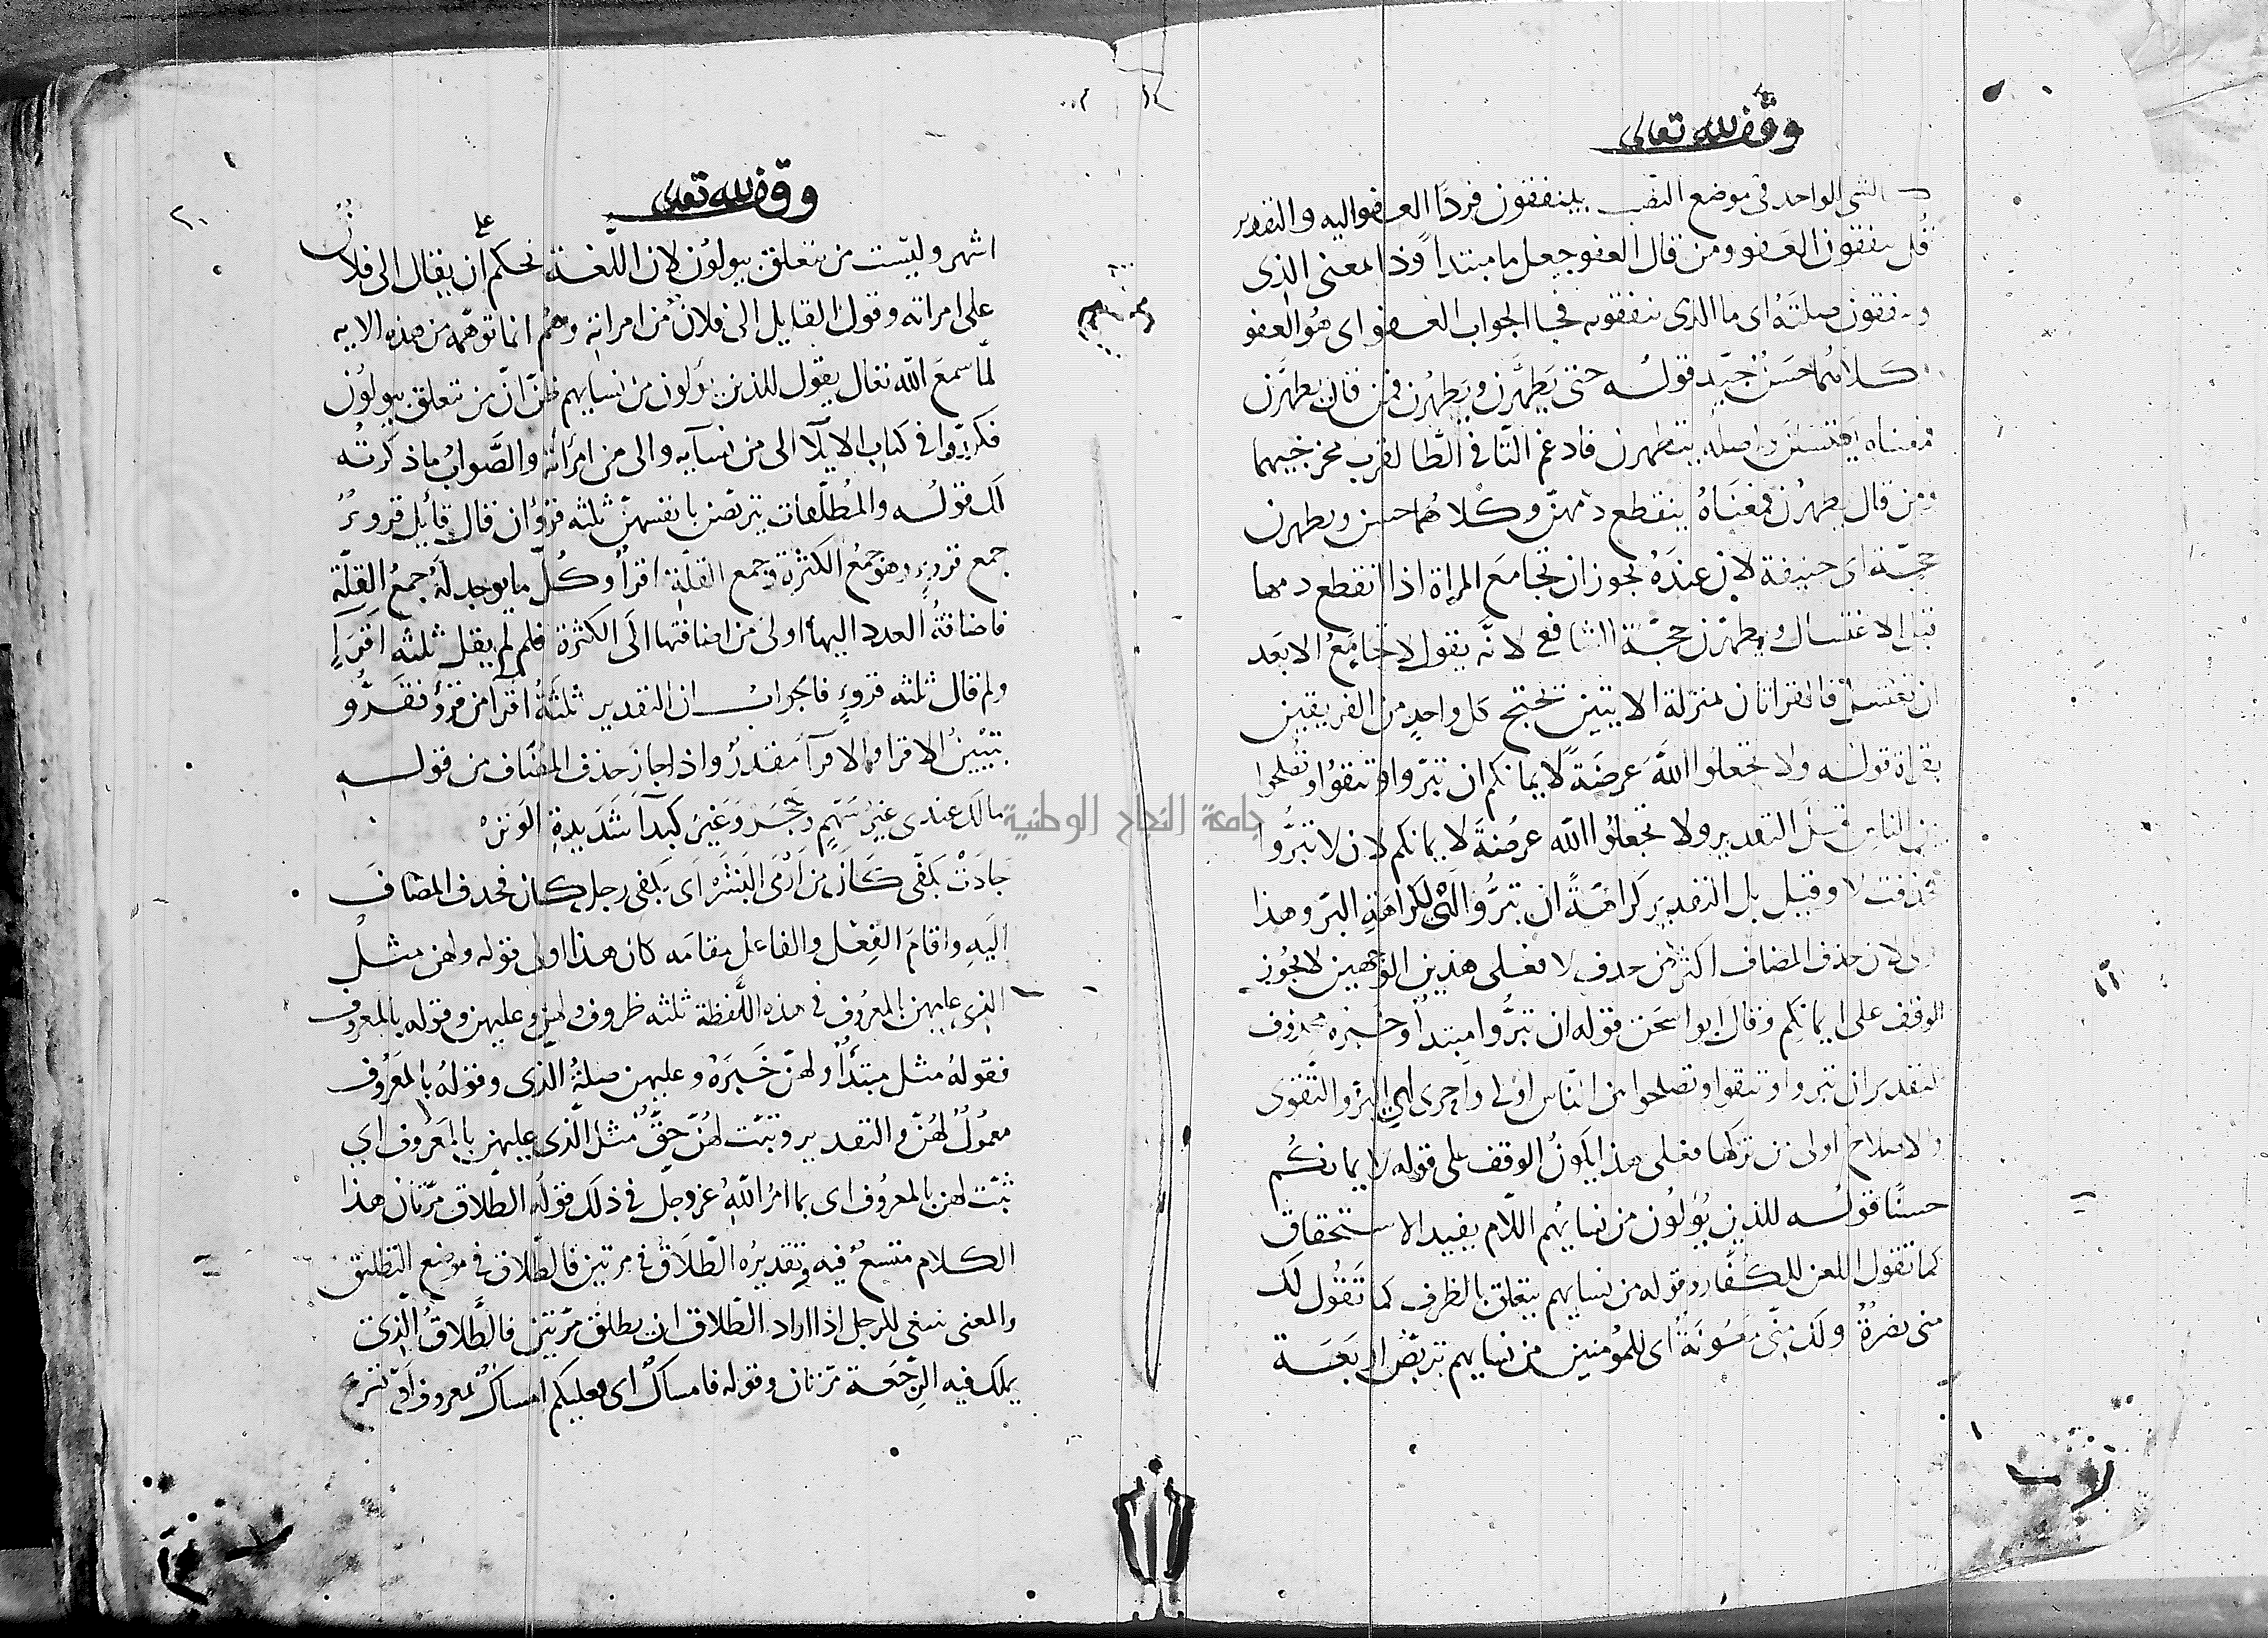 وقف لله تعالى
الشي الواحد في موضع النصب بينفقون فردا العفو اليه والتقدير
قل ينفقون العفو ومن قال العفو جعل ما مبتدا وذا لمعنى الذي
وينفقون صلته اى ما الذي ينفقونه فجا الجواب العفو اى هو العفو
وكلاهما حسن جيد قوله حتى يطهرن ويطهرن فمن قال يطهرن
فمعناه يغتسلن واصله يتطهرن فادغم التا في الطا لقرب مخرجيهما
ومن قال يطهرن فمعناه ينقطع دمهن وكلاهما حسن ويطهرن
حجة ابى حنيفة لان عنده يجوز ان تجامع المراة اذا انقطع دمها
قبل الاغتسال ويطهرن حجة الشافعي لانه يقول لا تجامع الا بعد
ان تغتسل فالقراتان بمنزلة الايتين يحتج كل واحد من الفريقين
بقراة قوله ولا تجعلوا الله عرضة لايمانكم ان تبروا وتتقوا وتصلحوا
بين الناس قيل التقدير ولا تجعلوا الله عرضة لايمانكم لان لا تبروا
فحذفت لا وقيل بل التقدير كراهة ان تبروا اى لكراهة البر وهذا
اولى لان حذف المضاف اكثر من حذف لا فعلى هذين الوجهين لا يجوز
الوقف على ايمانكم وقال ابو اسحق قوله ان تبروا مبتدا وخبره محذوف
التقدير ان تبروا وتتقوا وتصلحوا بين الناس اولى واحرى اى البر والتقوى
والاصلاح اولى من تركها فعلى هذا يكون الوقف على قوله لايمانكم
حسنا قوله للذين يؤلون من نسايهم اللام يفيد الاستحقاق
كما تقول اللعن للكفار وقوله من نسايهم يتعلق بالظرف كما تقول لك
منى نصرة ولك منى معونة اى للمؤمنين من نسايهم تربص اربعة
وقف لله تعالى
٢٠
اشهر وليست من تتعلق بيولون لان اللغة تحكم على ان يقال الى فلان
على امراته وقول القايل الى فلان من امراته وهم انما توهمه من هذه الايه
لما سمع الله تعالى يقول للذين يؤلون من نسايهم فظن ان من تتعلق بيولون
فكرروا في كتاب الايلا الى من نسآيه والى من امرأته والصواب ما ذكرته
لك قوله والمطلقات يتربصن بانفسهن ثلثه قروء ان قال قايل قروء
جمع قرء وهو جمع الكثرة وجمع القلة اقرأ وكل ما يوجد له جمع القلة
فاضافة العدد اليها اولى من اضافتها الى الكثرة فلم لم يقل ثلثه اقرا
ولم قال ثلثه قروء فالجواب ان التقدير ثلثة اقرا من قروء فقروء
تبيين الاقرا والاقرآ مقدر واذا جاز حذف المضاف من قوله
مالك عندى غير سهم وحجر وغير كبدآ شديدة الوتر
جادت بكفى كان من ارمى البشر اى بكفى رجل كان فحذف المضاف
اليه واقام الفعل والفاعل مقامه كان هذا اولى قوله ولهن مثل
الذي عليهن بالمعروف في هذه اللفظة ثلثه ظروف ولهن وعليهن وقوله بالمعروف
فقوله مثل مبتدأ ولهن خبره وعليهن صلة الذي وقوله بالمعروف
معمول لهن والتقدير وثبت لهن حق مثل الذي عليهن بالمعروف اي
ثبت لهن بالمعروف اى بما امر الله عز وجل في ذلك قوله الطلاق مرتان هذا
الكلام متسع فيه وتقديره الطلاق في مرتين فالطلاق في موضع التطليق
والمعنى ينبغي للرجل اذا اراد الطلاق ان يطلق مرتين فالطلاق الذي
يملك فيه الرجعة مرتان وقوله فامساك اى فعليكم امساك بمعروف او تسريح
جامعة النجاح الوطنية